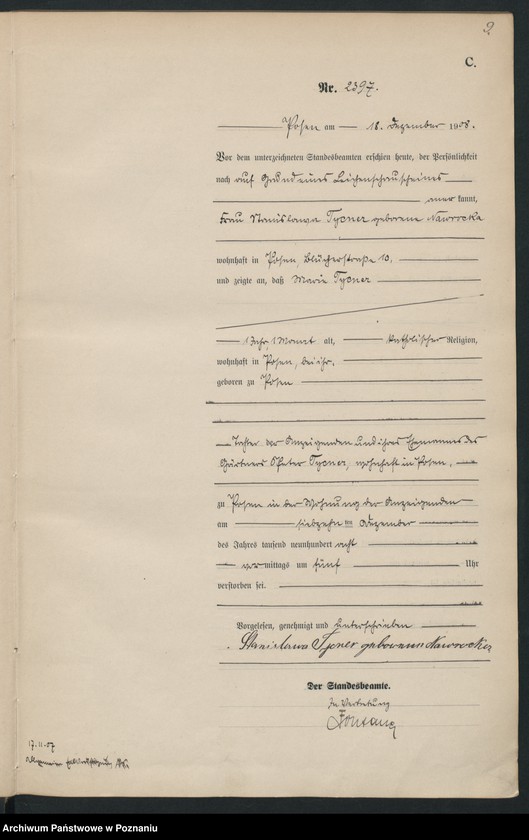 2
C.
Nr. 2397.
Posen am 18. Dezember 1908.
Vor dem unterzeichneten Standesbeamten erschien heute, der Persönlichkeit
nach auf Grund eines Leichenschauscheines
anerkannt,
Frau Stanislawa Tyoner geborene Nawrocka
wohnhaft in Posen, Blücherstraße 10.
und zeigte an, daß Marie Tyoner
1 Jahr, 1 Monat alt, katholischer Religion,
wohnhaft in Posen, bei ihr,
geboren zu Posen
Tochter der Anzeigenden und ihres Ehemannes des
Gärtners Peter Tyoner, wohnhaft in Posen.
zu Posen in der Wohnung der Anzeigenden
am siebzehnten Dezember
des Jahres tausend neunhundert acht
vormittags um fünf Uhr
verstorben sei.
Vorgelesen, genehmigt und unterschrieben
Stanislawa Tyoner geborene Nawrocka
Der Standesbeamte.
In Vertretung
Fontane
17.11.07
Archiwum Państwowe w Poznaniu